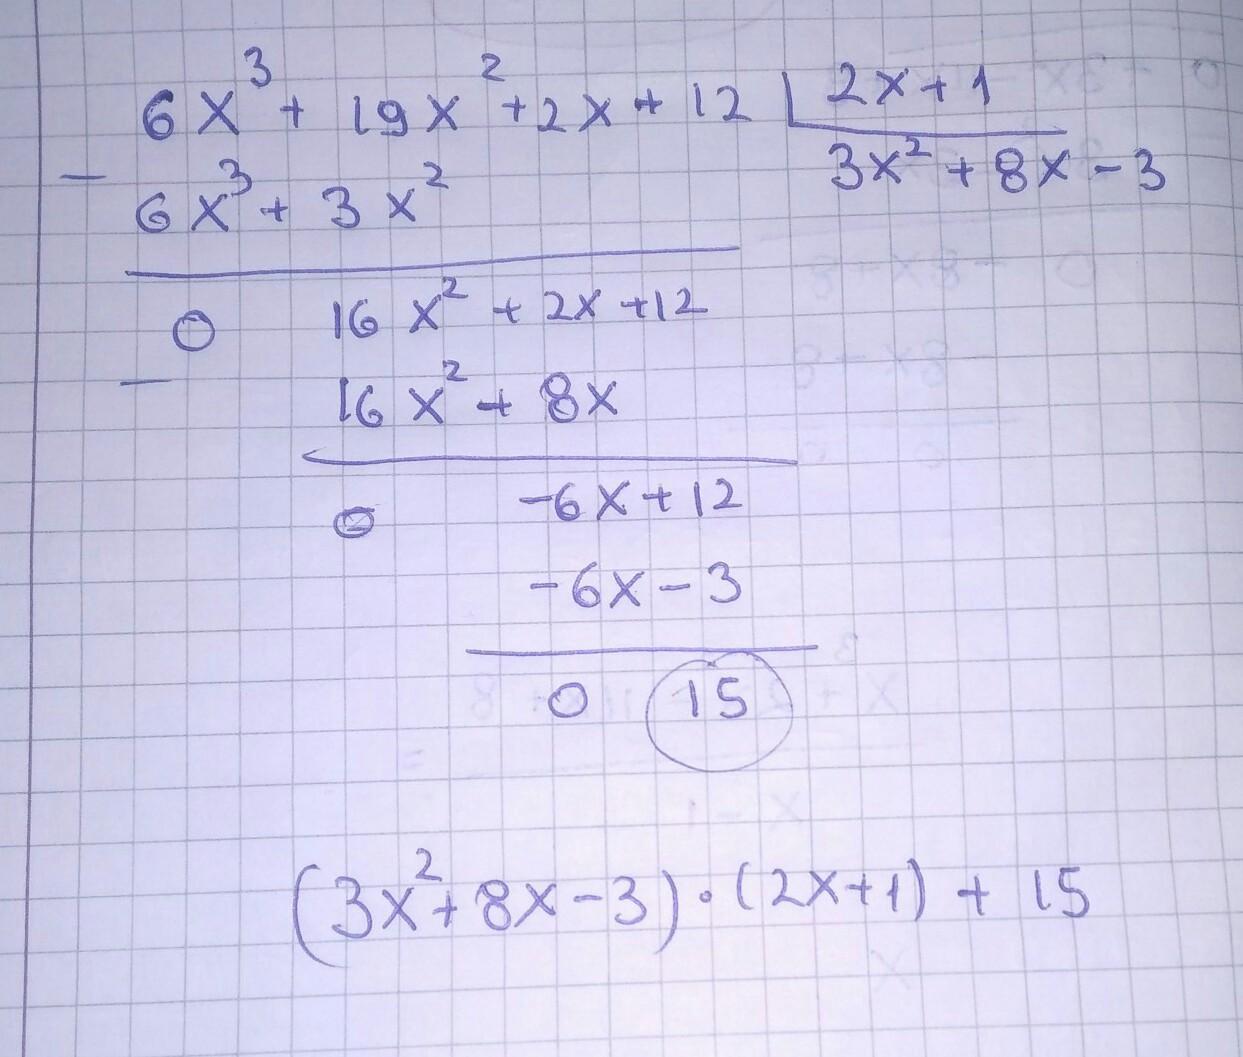 6x³ + 19x² + 2x + 12 | 2x + 1
− 6x³ + 3x² 3x² + 8x − 3
0 16x² + 2x + 12
− 16x² + 8x
0 −6x + 12
−6x − 3
0 15
(3x² + 8x − 3) · (2x + 1) + 15